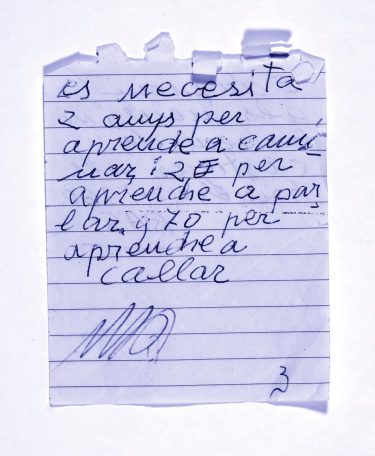 es necesita
2 anys per
aprende a cami
nar i 2 per
aprendre a par
lar, y 70 per
aprendre a
callar
3